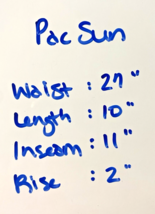 Pac Sun
Waist : 27"
Length : 10"
Inseam : 11"
Rise : 2"